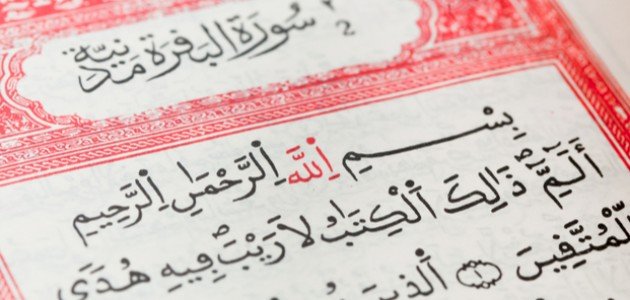 سُورَةُ البَقَرَة مَدَنِيَّة
٢
بِسْمِ اِللَّهِ اِلرَّحْمَٰنِ اِلرَّحِيمِ
أَلَٓمِّٓۖ ذَٰلِكَ اَلْكِتَٰبُ لَا رَيْبَۖ فِيهِ هُدىٗ
لِّلْمُتَّقِينَ ١ اَلذِينَ